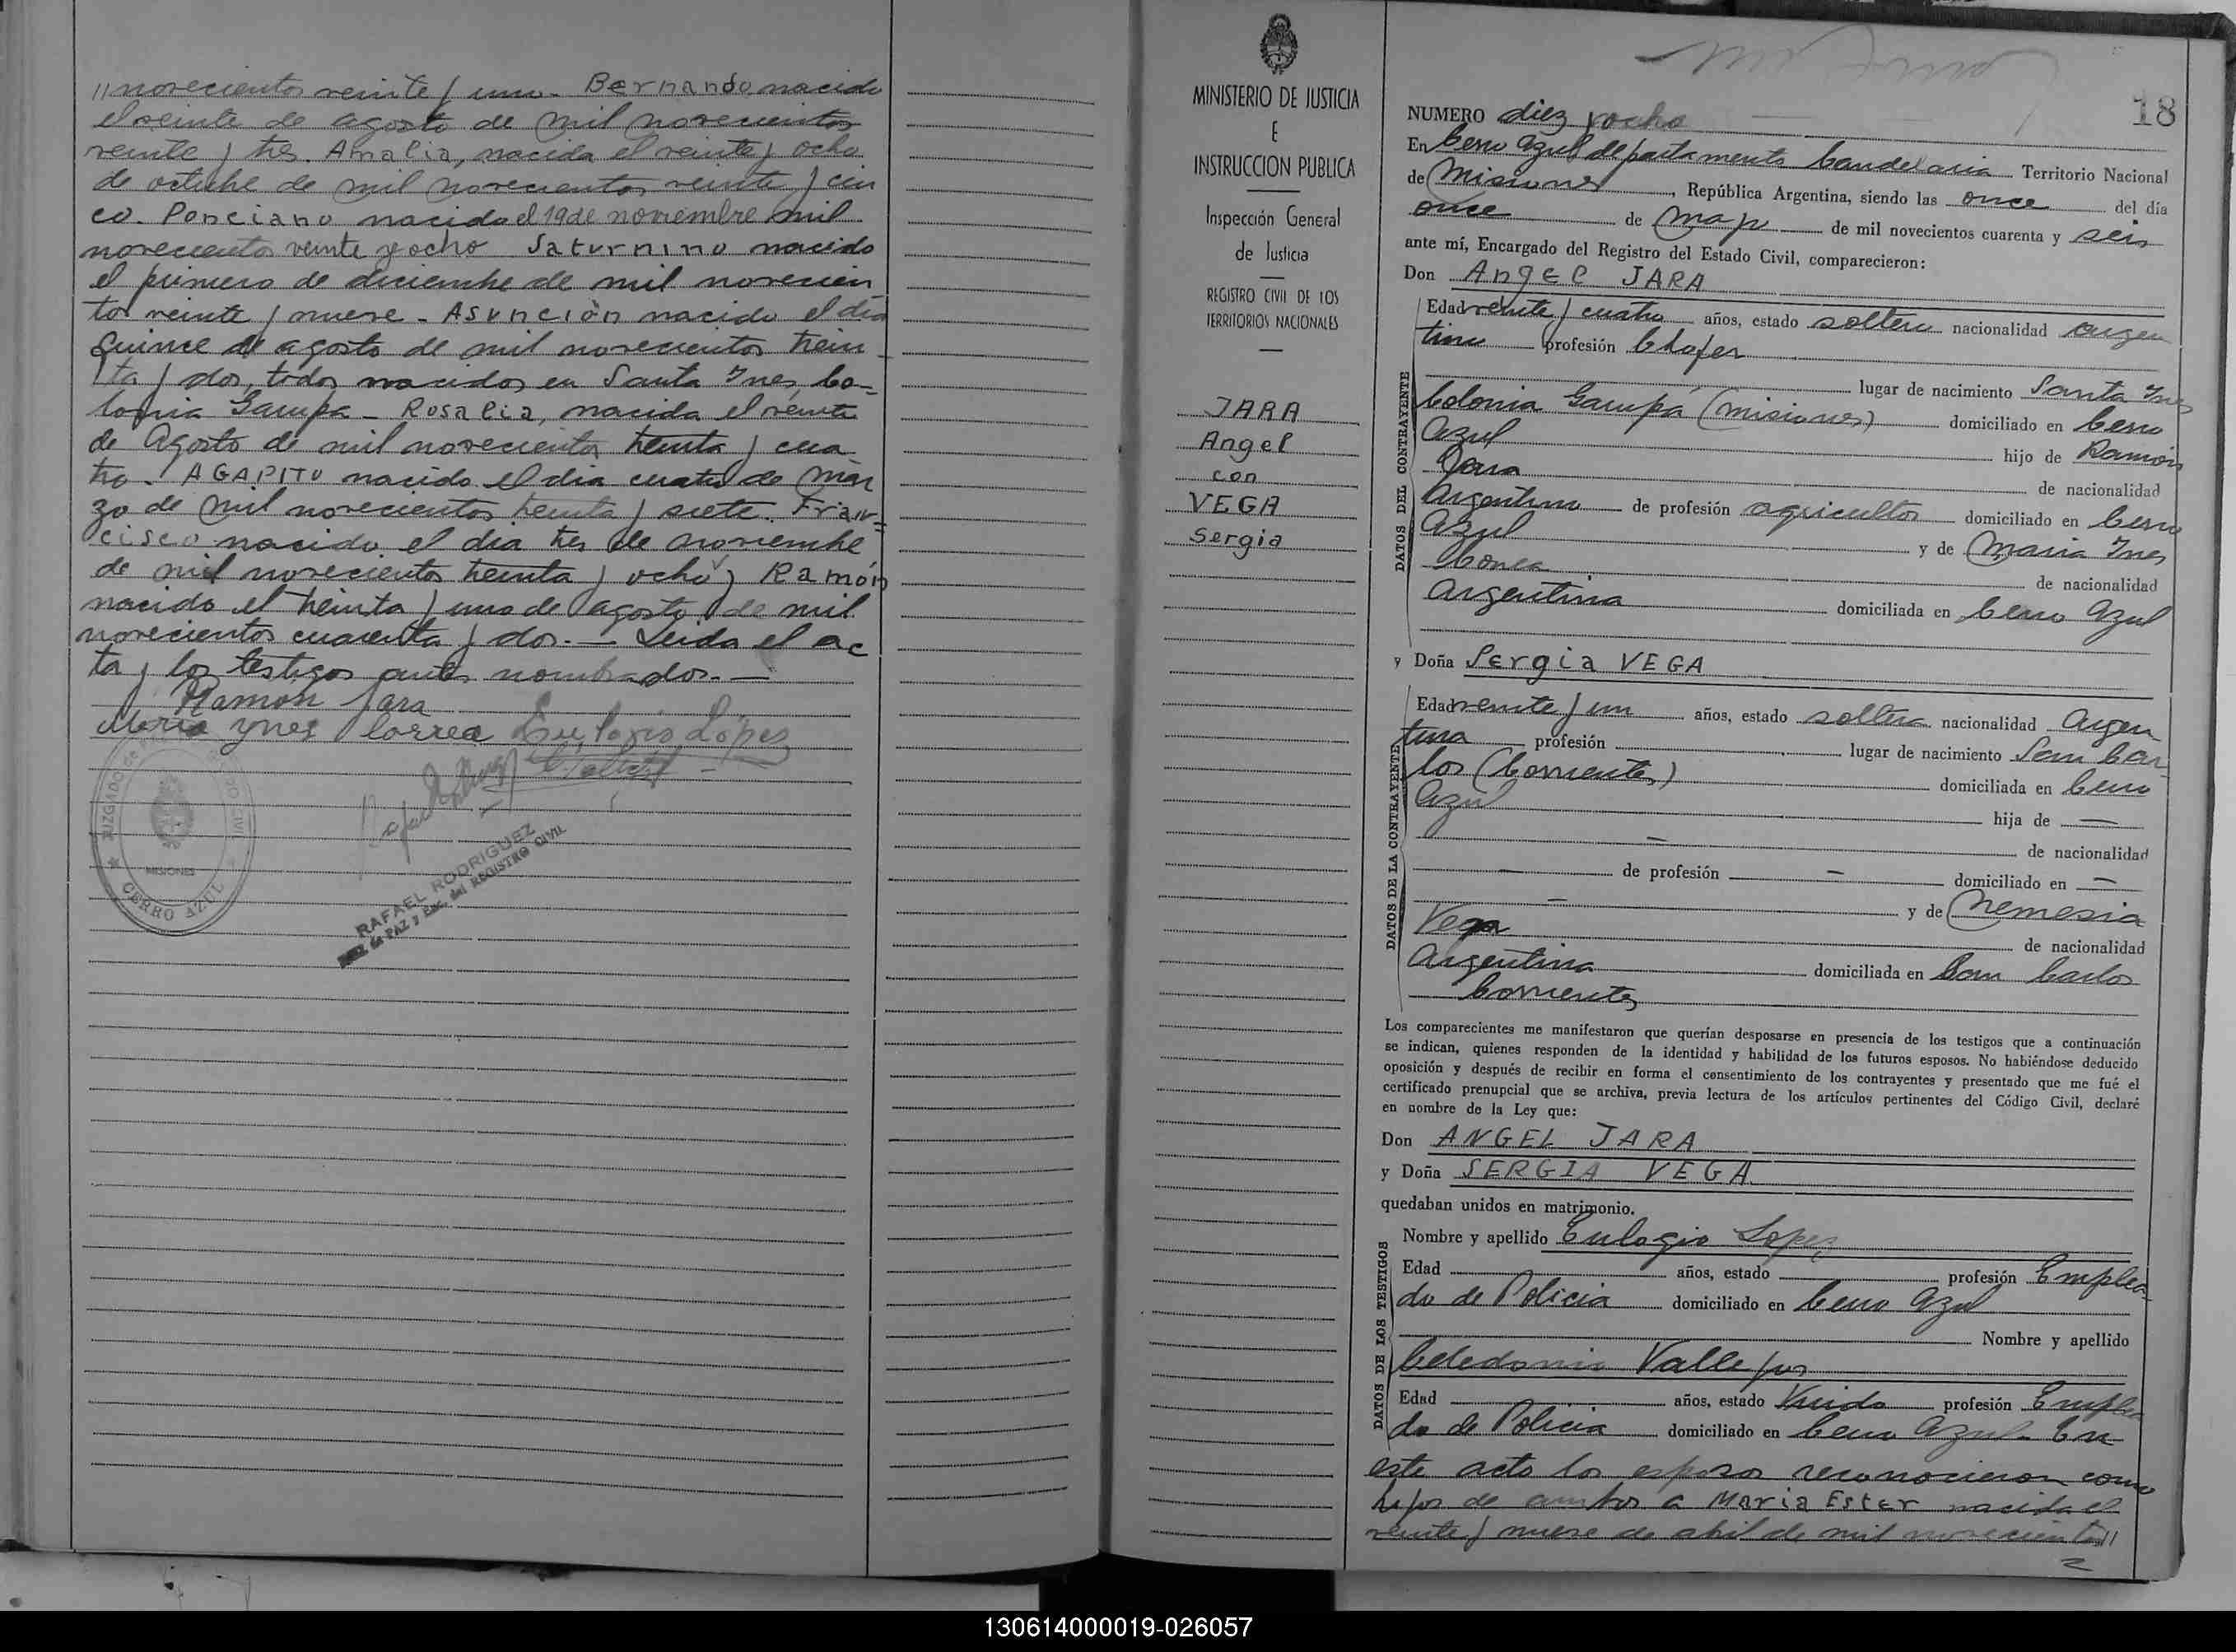 // novecientos veinte y uno. Bernardo nacido
el veinte de agosto de mil novecientos
veinte y tres. Amalia, nacida el veinte y ocho
de octubre de mil novecientos veinte y cin
co. Ponciano nacido el 19 de noviembre mil
novecientos veinte y ocho Saturnino nacido
el primero de diciembre de mil novecien
tos veinte y nueve - Asunción nacido el día
quince de agosto de mil novecientos trein
ta y dos, todos nacidos en Santa Ines Co-
lonia Garupa - Rosalia, nacida el veinte
de Agosto de mil novecientos treinta y cua
tro. AGAPITO nacido el dia cuatro de Mar
zo de mil novecientos treinta y siete. Fran=
cisco nacido el dia tres de noviembre
de mil novecientos treinta y ocho y Ramón
nacido el treinta y uno de agosto de mil
novecientos cuarenta y dos. — Leida el ac
ta y los testigos antes nombrados. —
Ramon Jara
Maria ynes Correa Eulogio López
JUZGADO DE
CIVIL
MISIONES
★ CERRO AZUL
RAFAEL RODRIGUEZ
JUEZ de PAZ y Enc. del REGISTRO CIVIL
MINISTERIO DE JUSTICIA
E
INSTRUCCION PUBLICA
Inspección General
de Justicia
REGISTRO CIVIL DE LOS
TERRITORIOS NACIONALES
JARA
Angel
con
VEGA
Sergia
18
NUMERO diez y ocho
En Cerro Azul departamento Candelaria Territorio Nacional
de Misiones, República Argentina, siendo las once del día
once de Mayo de mil novecientos cuarenta y seis
ante mí, Encargado del Registro del Estado Civil, comparecieron:
Don Angel JARA
DATOS DEL CONTRAYENTE
Edad veinte y cuatro años, estado soltero nacionalidad argen
tino profesión Chofer
lugar de nacimiento Santa Ines
Colonia Garupá (Misiones) domiciliado en Cerro
Azul hijo de Ramón
Jara de nacionalidad
Argentino de profesión agricultor domiciliado en Cerro
Azul y de Maria Ines
Correa de nacionalidad
Argentina domiciliada en Cerro Azul
y Doña Sergia VEGA
DATOS DE LA CONTRAYENTE
Edad veinte y un años, estado soltera nacionalidad Argen
tina profesión lugar de nacimiento San Car
los (Corrientes) domiciliada en Cerro
Azul hija de —
— de nacionalidad
— de profesión — domiciliado en —
— y de Nemesia
Vega de nacionalidad
Argentina domiciliada en San Carlos
Corrientes
Los comparecientes me manifestaron que querían desposarse en presencia de los testigos que a continuación
se indican, quienes responden de la identidad y habilidad de los futuros esposos. No habiéndose deducido
oposición y después de recibir en forma el consentimiento de los contrayentes y presentado que me fué el
certificado prenupcial que se archiva, previa lectura de los artículos pertinentes del Código Civil, declaré
en nombre de la Ley que:
Don ANGEL JARA
y Doña SERGIA VEGA
quedaban unidos en matrimonio.
DATOS DE LOS TESTIGOS
Nombre y apellido Eulogio Lopez
Edad años, estado profesión Emplea-
do de Policia domiciliado en Cerro Azul
Nombre y apellido
Celedonio Vallejos
Edad años, estado Viudo profesión Emplea
do de Policia domiciliado en Cerro Azul - En
este acto los esposos reconocieron como
hijos de ambos a Maria Ester nacida el
veinte y nueve de abril de mil novecientos //
130614000019-026057